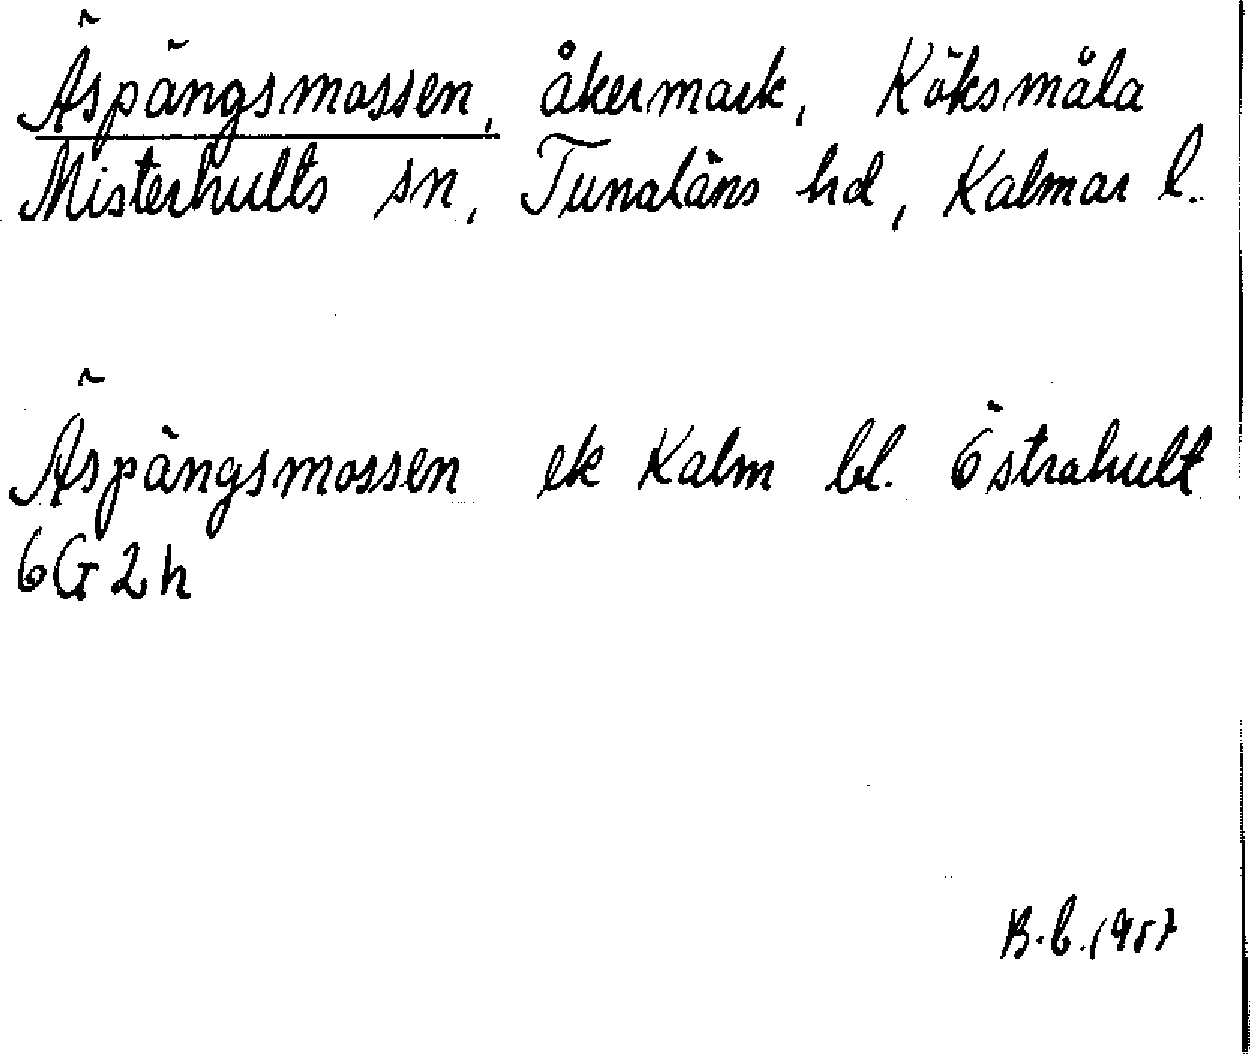 Äspängsmossen, åkermark, Köksmåla
Misterhults sn, Tunaläns hd, Kalmar l.
Äspängsmossen ek Kalm bl. Östrahult
6G2h
B.b. 1957